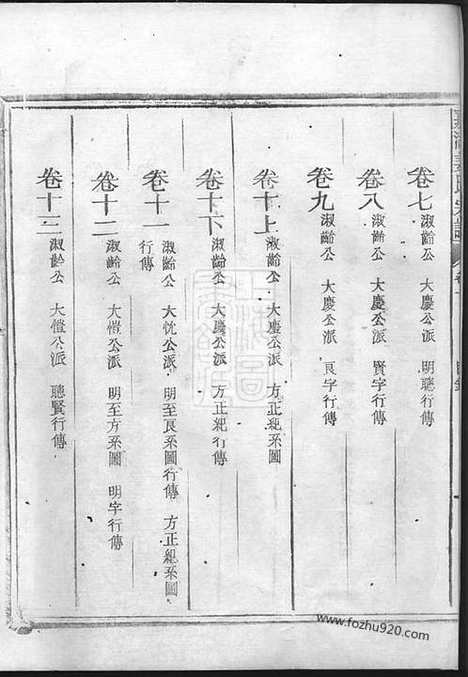 卷七 淑齡公 大慶公派 明聽行傳
卷八 淑齡公 大慶公派 賢字行傳
卷九 淑齡公 大慶公派 良字行傳
卷十上 淑齡公 大慶公派 方正紀系圖
卷十下 淑齡公 大慶公派 方正紀行傳
卷十一 淑齡公 大忱公派 明至良系圖行傳 方正紀系圖
行傳
卷十二 淑齡公 大愷公派 明至方系圖 明字行傳
卷十三 淑齡公 大愷公派 聽賢行傳
www.fozhu920.com